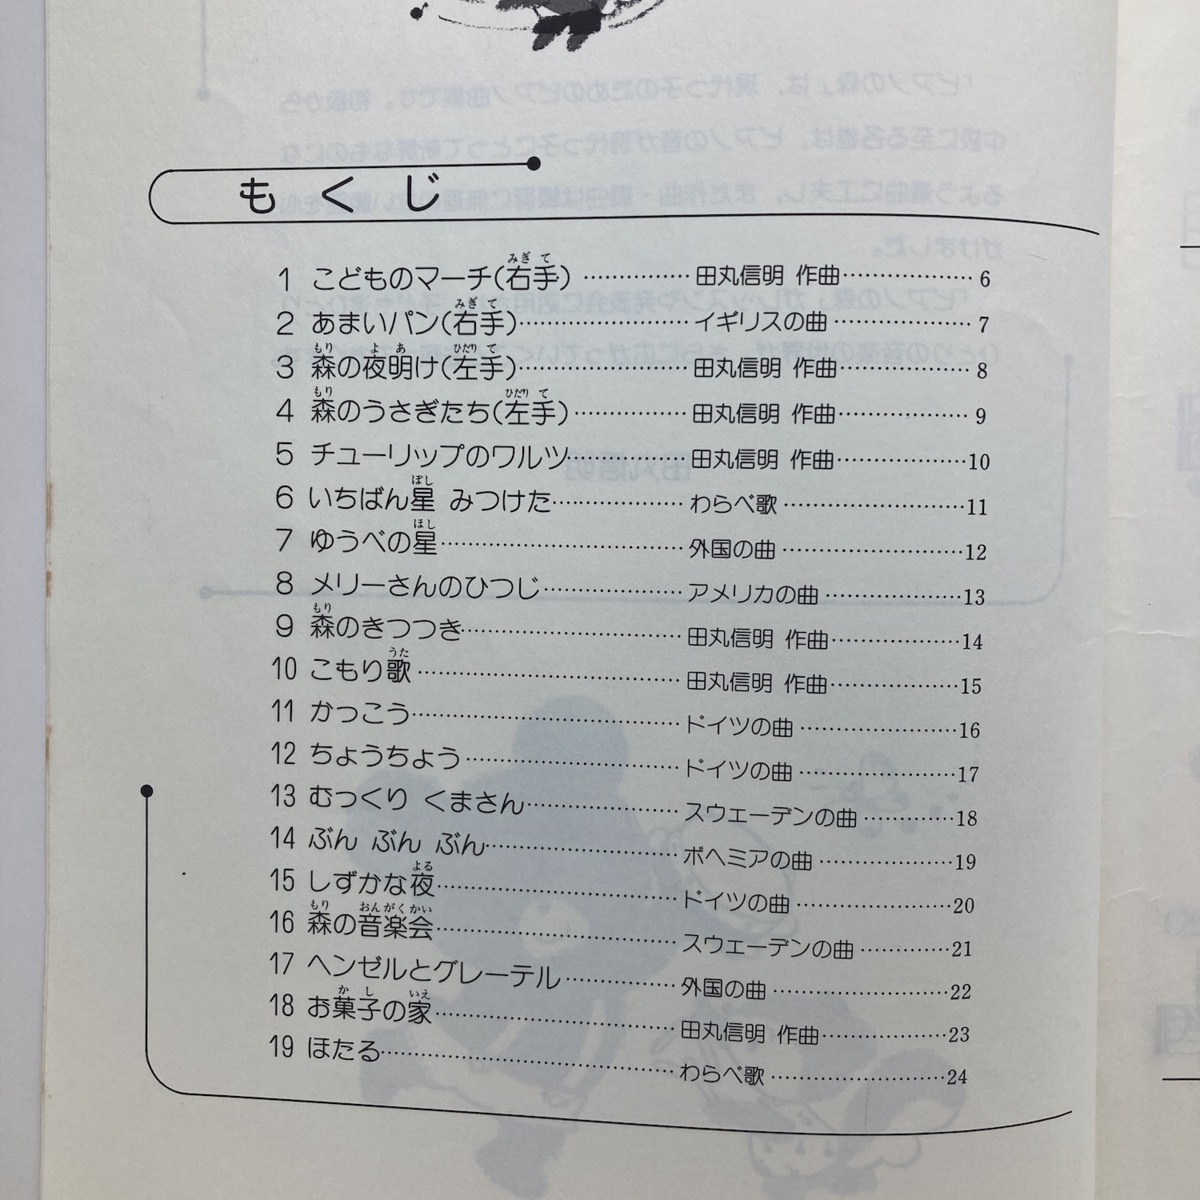 もくじ
1 こどものマーチ(右手) ……………田丸信明 作曲……………… 6
2 あまいパン(右手)……………………イギリスの曲 ……………… 7
3 森の夜明け(左手)……………………田丸信明 作曲……………… 8
4 森のうさぎたち(左手) ……………田丸信明 作曲……………… 9
5 チューリップのワルツ………………田丸信明 作曲………………10
6 いちばん星 みつけた………………わらべ歌 ……………………11
7 ゆうべの星……………………………外国の曲 ……………………12
8 メリーさんのひつじ…………………アメリカの曲 ………………13
9 森のきつつき…………………………田丸信明 作曲………………14
10 こもり歌 ……………………………田丸信明 作曲………………15
11 かっこう………………………………ドイツの曲 …………………16
12 ちょうちょう…………………………ドイツの曲 …………………17
13 むっくり くまさん…………………スウェーデンの曲 …………18
14 ぶん ぶん ぶん……………………ボヘミアの曲 ………………19
15 しずかな夜……………………………ドイツの曲 …………………20
16 森の音楽会……………………………スウェーデンの曲 …………21
17 ヘンゼルとグレーテル………………外国の曲 ……………………22
18 お菓子の家……………………………田丸信明 作曲………………23
19 ほたる…………………………………わらべ歌 ……………………24